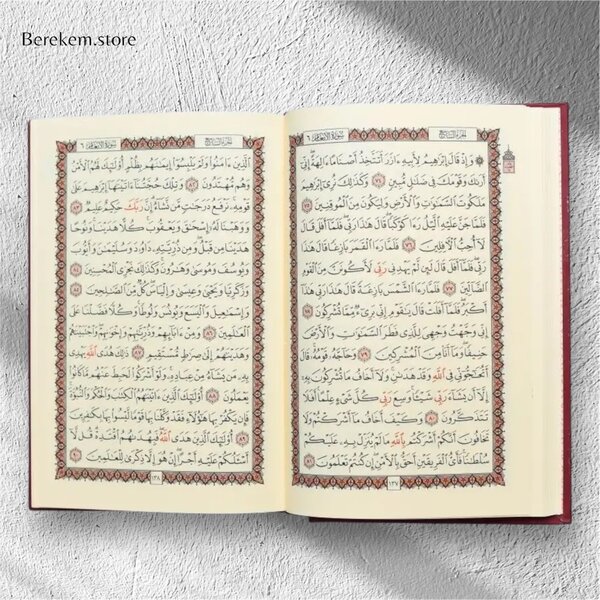 Berekem.store
سورة الأنعام ٦
الجزء السابع
۞ وَإِذْ قَالَ إِبْرَٰهِيمُ لِأَبِيهِ ءَازَرَ أَتَتَّخِذُ أَصْنَامًا ءَالِهَةً إِنِّىٓ
أَرَىٰكَ وَقَوْمَكَ فِى ضَلَٰلٍ مُّبِينٍ ٧٤ وَكَذَٰلِكَ نُرِىٓ إِبْرَٰهِيمَ
مَلَكُوتَ ٱلسَّمَٰوَٰتِ وَٱلْأَرْضِ وَلِيَكُونَ مِنَ ٱلْمُوقِنِينَ ٧٥
فَلَمَّا جَنَّ عَلَيْهِ ٱلَّيْلُ رَءَا كَوْكَبًا قَالَ هَٰذَا رَبِّى فَلَمَّآ أَفَلَ قَالَ
لَآ أُحِبُّ ٱلْءَافِلِينَ ٧٦ فَلَمَّا رَءَا ٱلْقَمَرَ بَازِغًا قَالَ هَٰذَا
رَبِّى فَلَمَّآ أَفَلَ قَالَ لَئِن لَّمْ يَهْدِنِى رَبِّى لَأَكُونَنَّ مِنَ ٱلْقَوْمِ
ٱلضَّآلِّينَ ٧٧ فَلَمَّا رَءَا ٱلشَّمْسَ بَازِغَةً قَالَ هَٰذَا رَبِّى هَٰذَآ
أَكْبَرُ فَلَمَّآ أَفَلَتْ قَالَ يَٰقَوْمِ إِنِّى بَرِىٓءٌ مِّمَّا تُشْرِكُونَ ٧٨
إِنِّى وَجَّهْتُ وَجْهِىَ لِلَّذِى فَطَرَ ٱلسَّمَٰوَٰتِ وَٱلْأَرْضَ
حَنِيفًا وَمَآ أَنَا۠ مِنَ ٱلْمُشْرِكِينَ ٧٩ وَحَآجَّهُۥ قَوْمُهُۥ قَالَ
أَتُحَٰٓجُّوٓنِّى فِى ٱللَّهِ وَقَدْ هَدَىٰنِ وَلَآ أَخَافُ مَا تُشْرِكُونَ بِهِۦٓ
إِلَّآ أَن يَشَآءَ رَبِّى شَيْـًٔا وَسِعَ رَبِّى كُلَّ شَىْءٍ عِلْمًا أَفَلَا
تَتَذَكَّرُونَ ٨٠ وَكَيْفَ أَخَافُ مَآ أَشْرَكْتُمْ وَلَا
تَخَافُونَ أَنَّكُمْ أَشْرَكْتُم بِٱللَّهِ مَا لَمْ يُنَزِّلْ بِهِۦ عَلَيْكُمْ
سُلْطَٰنًا فَأَىُّ ٱلْفَرِيقَيْنِ أَحَقُّ بِٱلْأَمْنِ إِن كُنتُمْ تَعْلَمُونَ ٨١
١٣٧
الجزء السابع
سورة الأنعام ٦
ٱلَّذِينَ ءَامَنُوا۟ وَلَمْ يَلْبِسُوٓا۟ إِيمَٰنَهُم بِظُلْمٍ أُو۟لَٰٓئِكَ لَهُمُ ٱلْأَمْنُ
وَهُم مُّهْتَدُونَ ٨٢ وَتِلْكَ حُجَّتُنَآ ءَاتَيْنَٰهَآ إِبْرَٰهِيمَ عَلَىٰ
قَوْمِهِۦ نَرْفَعُ دَرَجَٰتٍ مَّن نَّشَآءُ إِنَّ رَبَّكَ حَكِيمٌ عَلِيمٌ ٨٣
وَوَهَبْنَا لَهُۥٓ إِسْحَٰقَ وَيَعْقُوبَ كُلًّا هَدَيْنَا وَنُوحًا
هَدَيْنَا مِن قَبْلُ وَمِن ذُرِّيَّتِهِۦ دَاوُۥدَ وَسُلَيْمَٰنَ وَأَيُّوبَ
وَيُوسُفَ وَمُوسَىٰ وَهَٰرُونَ وَكَذَٰلِكَ نَجْزِى ٱلْمُحْسِنِينَ ٨٤
وَزَكَرِيَّا وَيَحْيَىٰ وَعِيسَىٰ وَإِلْيَاسَ كُلٌّ مِّنَ ٱلصَّٰلِحِينَ ٨٥
وَإِسْمَٰعِيلَ وَٱلْيَسَعَ وَيُونُسَ وَلُوطًا وَكُلًّا فَضَّلْنَا عَلَى
ٱلْعَٰلَمِينَ ٨٦ وَمِنْ ءَابَآئِهِمْ وَذُرِّيَّٰتِهِمْ وَإِخْوَٰنِهِمْ وَٱجْتَبَيْنَٰهُمْ
وَهَدَيْنَٰهُمْ إِلَىٰ صِرَٰطٍ مُّسْتَقِيمٍ ٨٧ ذَٰلِكَ هُدَى ٱللَّهِ يَهْدِى
بِهِۦ مَن يَشَآءُ مِنْ عِبَادِهِۦ وَلَوْ أَشْرَكُوا۟ لَحَبِطَ عَنْهُم مَّا كَانُوا۟
يَعْمَلُونَ ٨٨ أُو۟لَٰٓئِكَ ٱلَّذِينَ ءَاتَيْنَٰهُمُ ٱلْكِتَٰبَ وَٱلْحُكْمَ وَٱلنُّبُوَّةَ
فَإِن يَكْفُرْ بِهَا هَٰٓؤُلَآءِ فَقَدْ وَكَّلْنَا بِهَا قَوْمًا لَّيْسُوا۟ بِهَا بِكَٰفِرِينَ
٨٩ أُو۟لَٰٓئِكَ ٱلَّذِينَ هَدَى ٱللَّهُ فَبِهُدَىٰهُمُ ٱقْتَدِهْ قُل لَّآ
أَسْـَٔلُكُمْ عَلَيْهِ أَجْرًا إِنْ هُوَ إِلَّا ذِكْرَىٰ لِلْعَٰلَمِينَ ٩٠
١٣٨